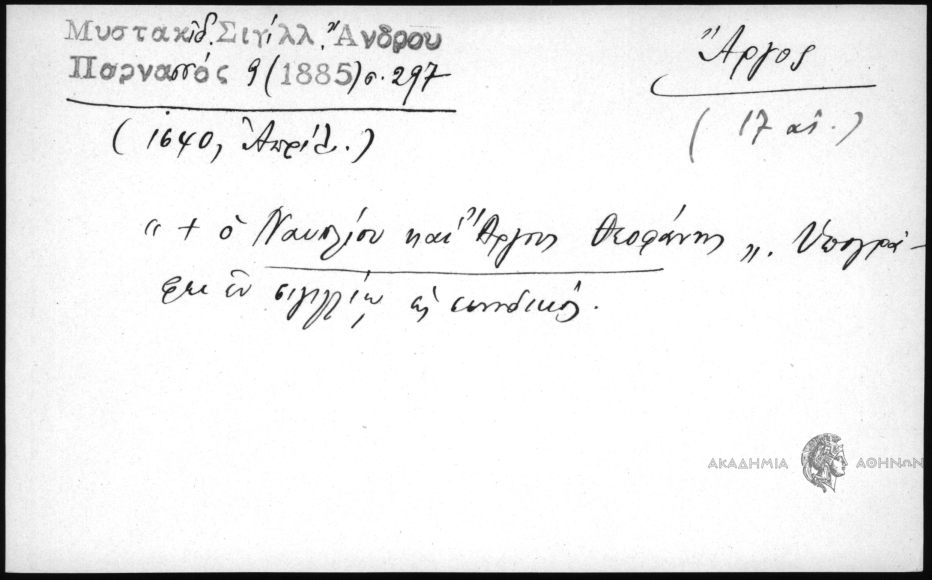 Μυστακίδ. Σιγίλλ. Ἄνδρου
Παρνασσός 9 (1885) σ. 297
(1640, Ἀπρίλ.)
Ἄργος
(17 αἰ.)
"+ ὁ Ναυπλίου καὶ Ἄργους Θεοφάνης". Ὑπογρά-
φει ἐν σιγιλλίῳ ὡς συνοδικός.
ΑΚΑΔΗΜΙΑ ΑΘΗΝΩΝ